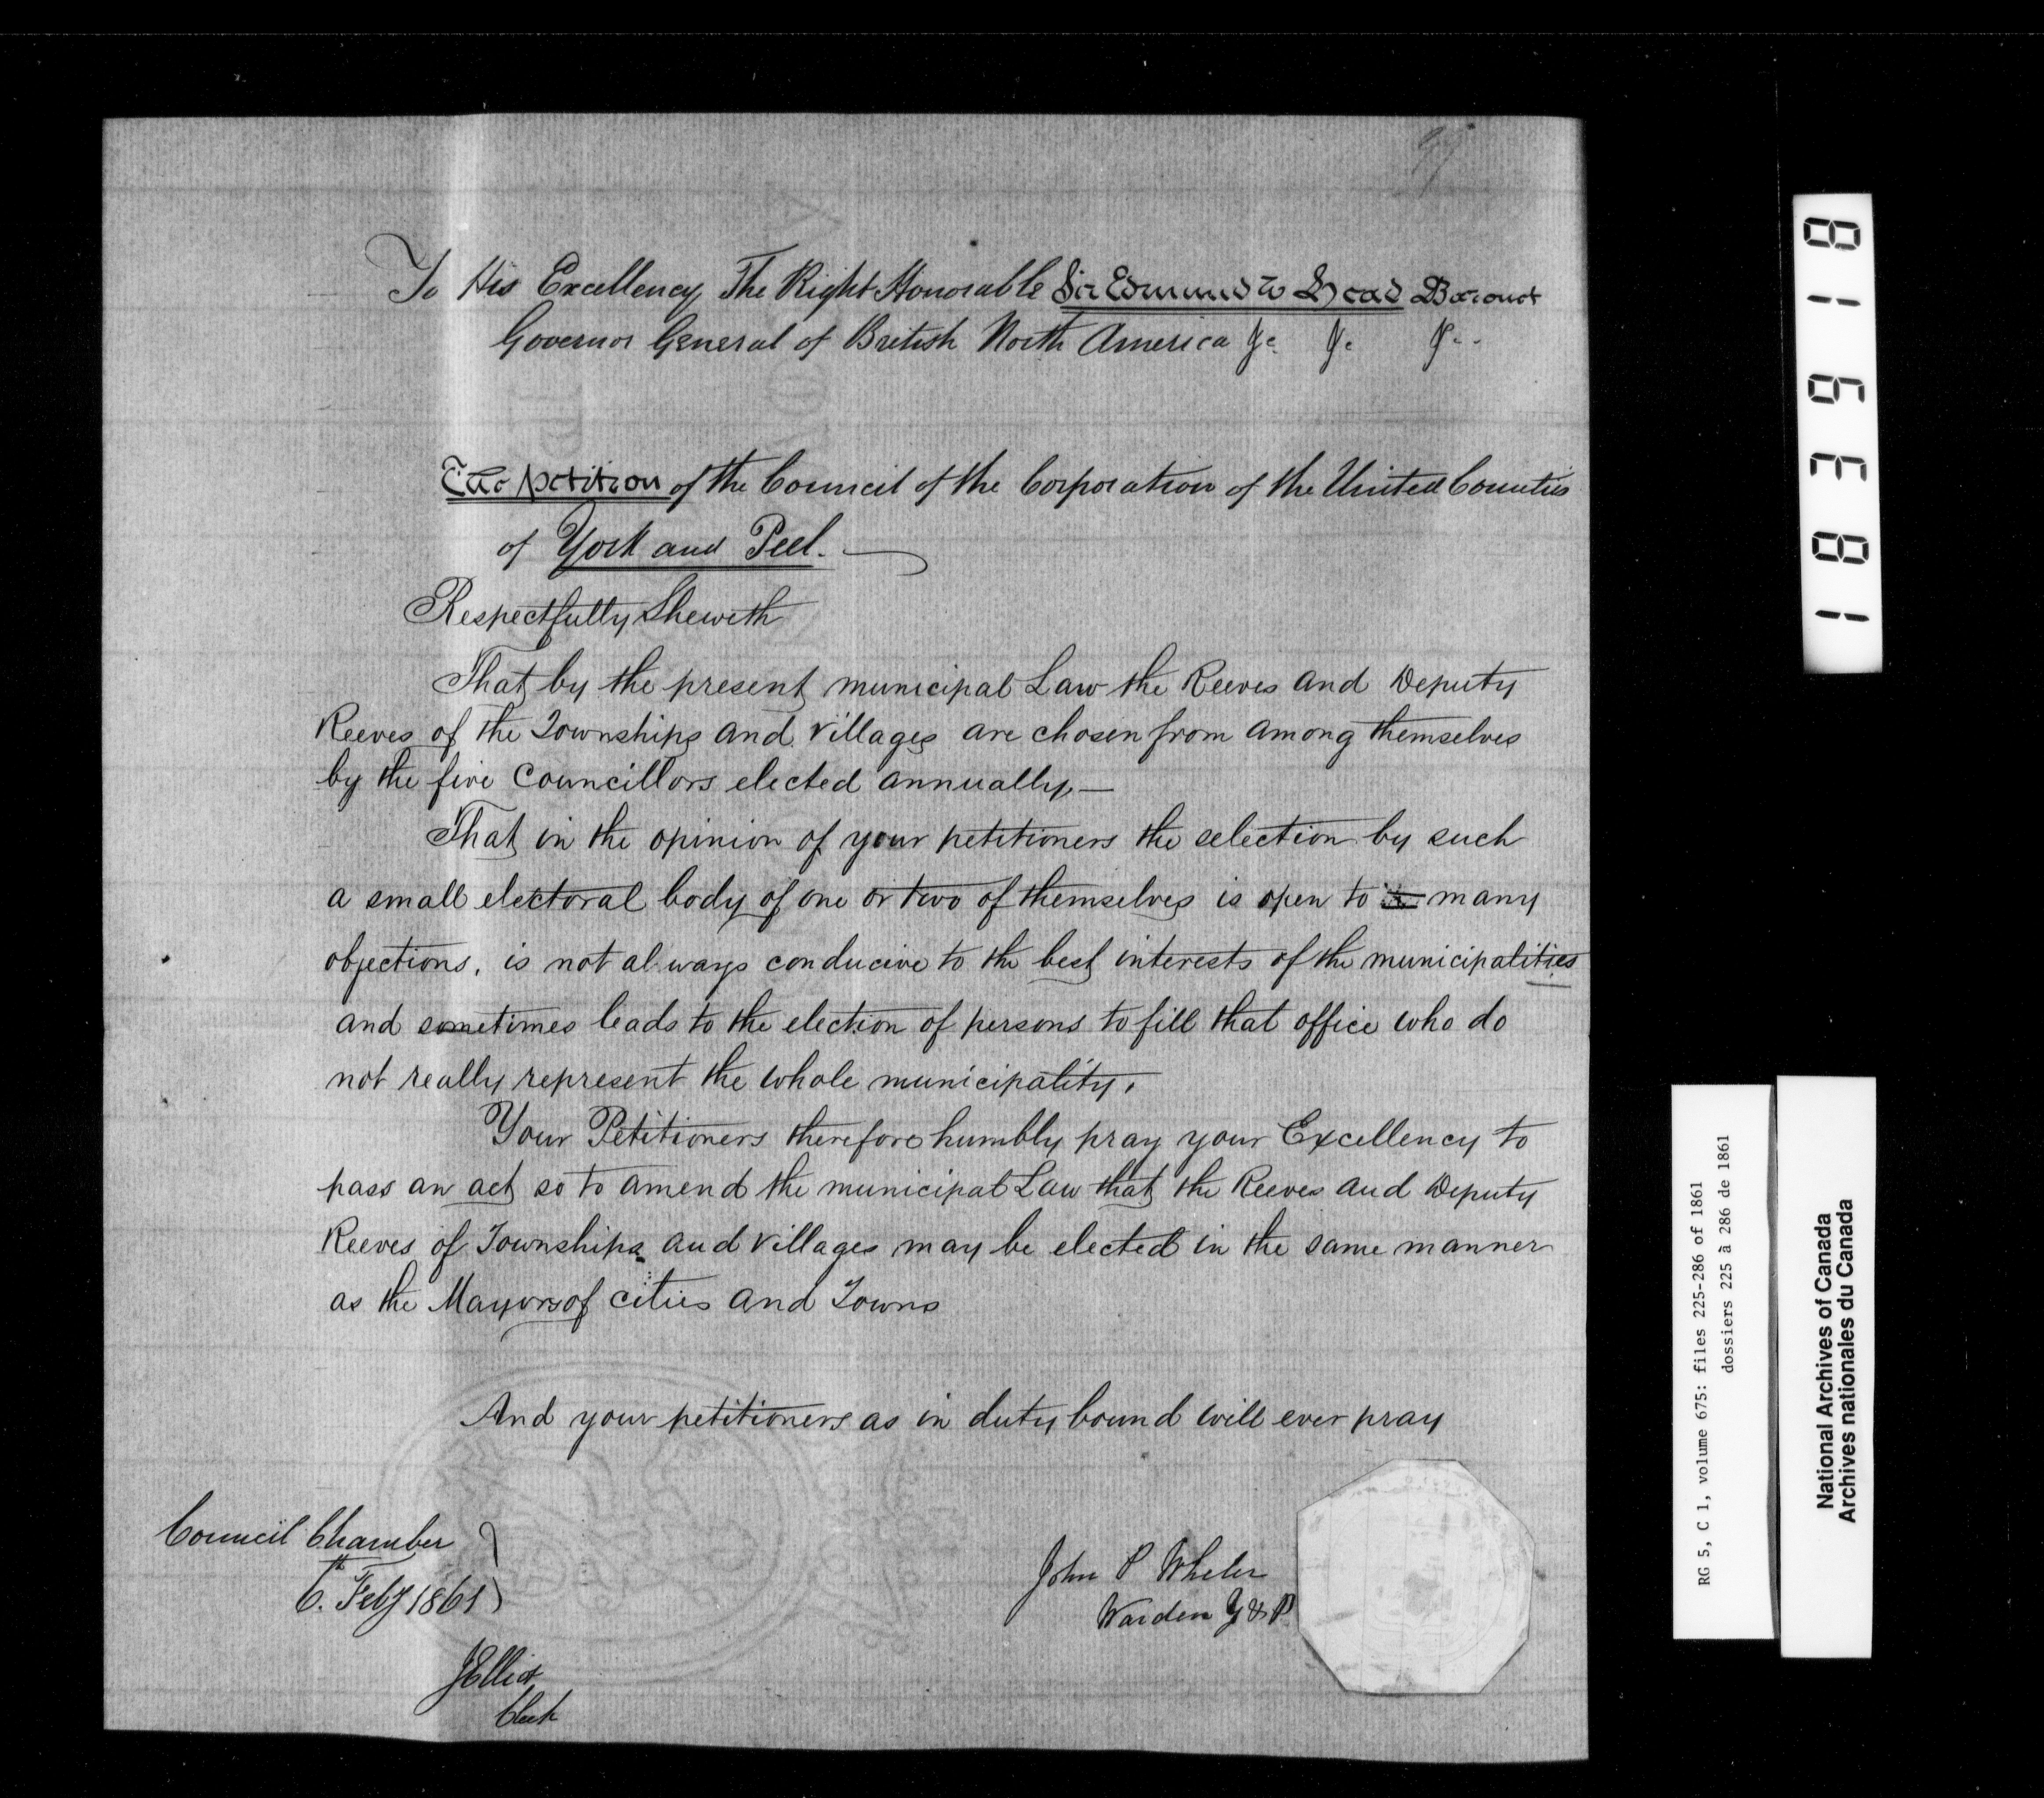 To His Excellency The Right Honorable Sir Edmund W Head Baronet
Governor General of British North America &c &c &c.
The petition of the Council of the Corporation of the United Counties
of York and Peel.
Respectfully Sheweth
That by the present municipal Law the Reeves and Deputy
Reeves of the Townships and Villages are chosen from among themselves
by the five Councillors elected annually,—
That in the opinion of your petitioners the selection by such
a small electoral body of one or two of themselves is open to many
objections, is not always conducive to the best interests of the municipalities
and sometimes leads to the election of persons to fill that office who do
not really represent the whole municipality.
Your Petitioners therefore humbly pray your Excellency to
pass an act so to amend the municipal Law that the Reeves and Deputy
Reeves of Townships and Villages may be elected in the same manner
as the Mayors of cities and Towns
And your petitioners as in duty bound will ever pray
Council Chamber
6th. Feby 1861
John P Wheler
Warden Y & P
J Elliot
Clerk
1 8 3 6 1 8
RG 5, C 1, volume 675: files 225-286 of 1861
dossiers 225 à 286 de 1861
National Archives of Canada
Archives nationales du Canada